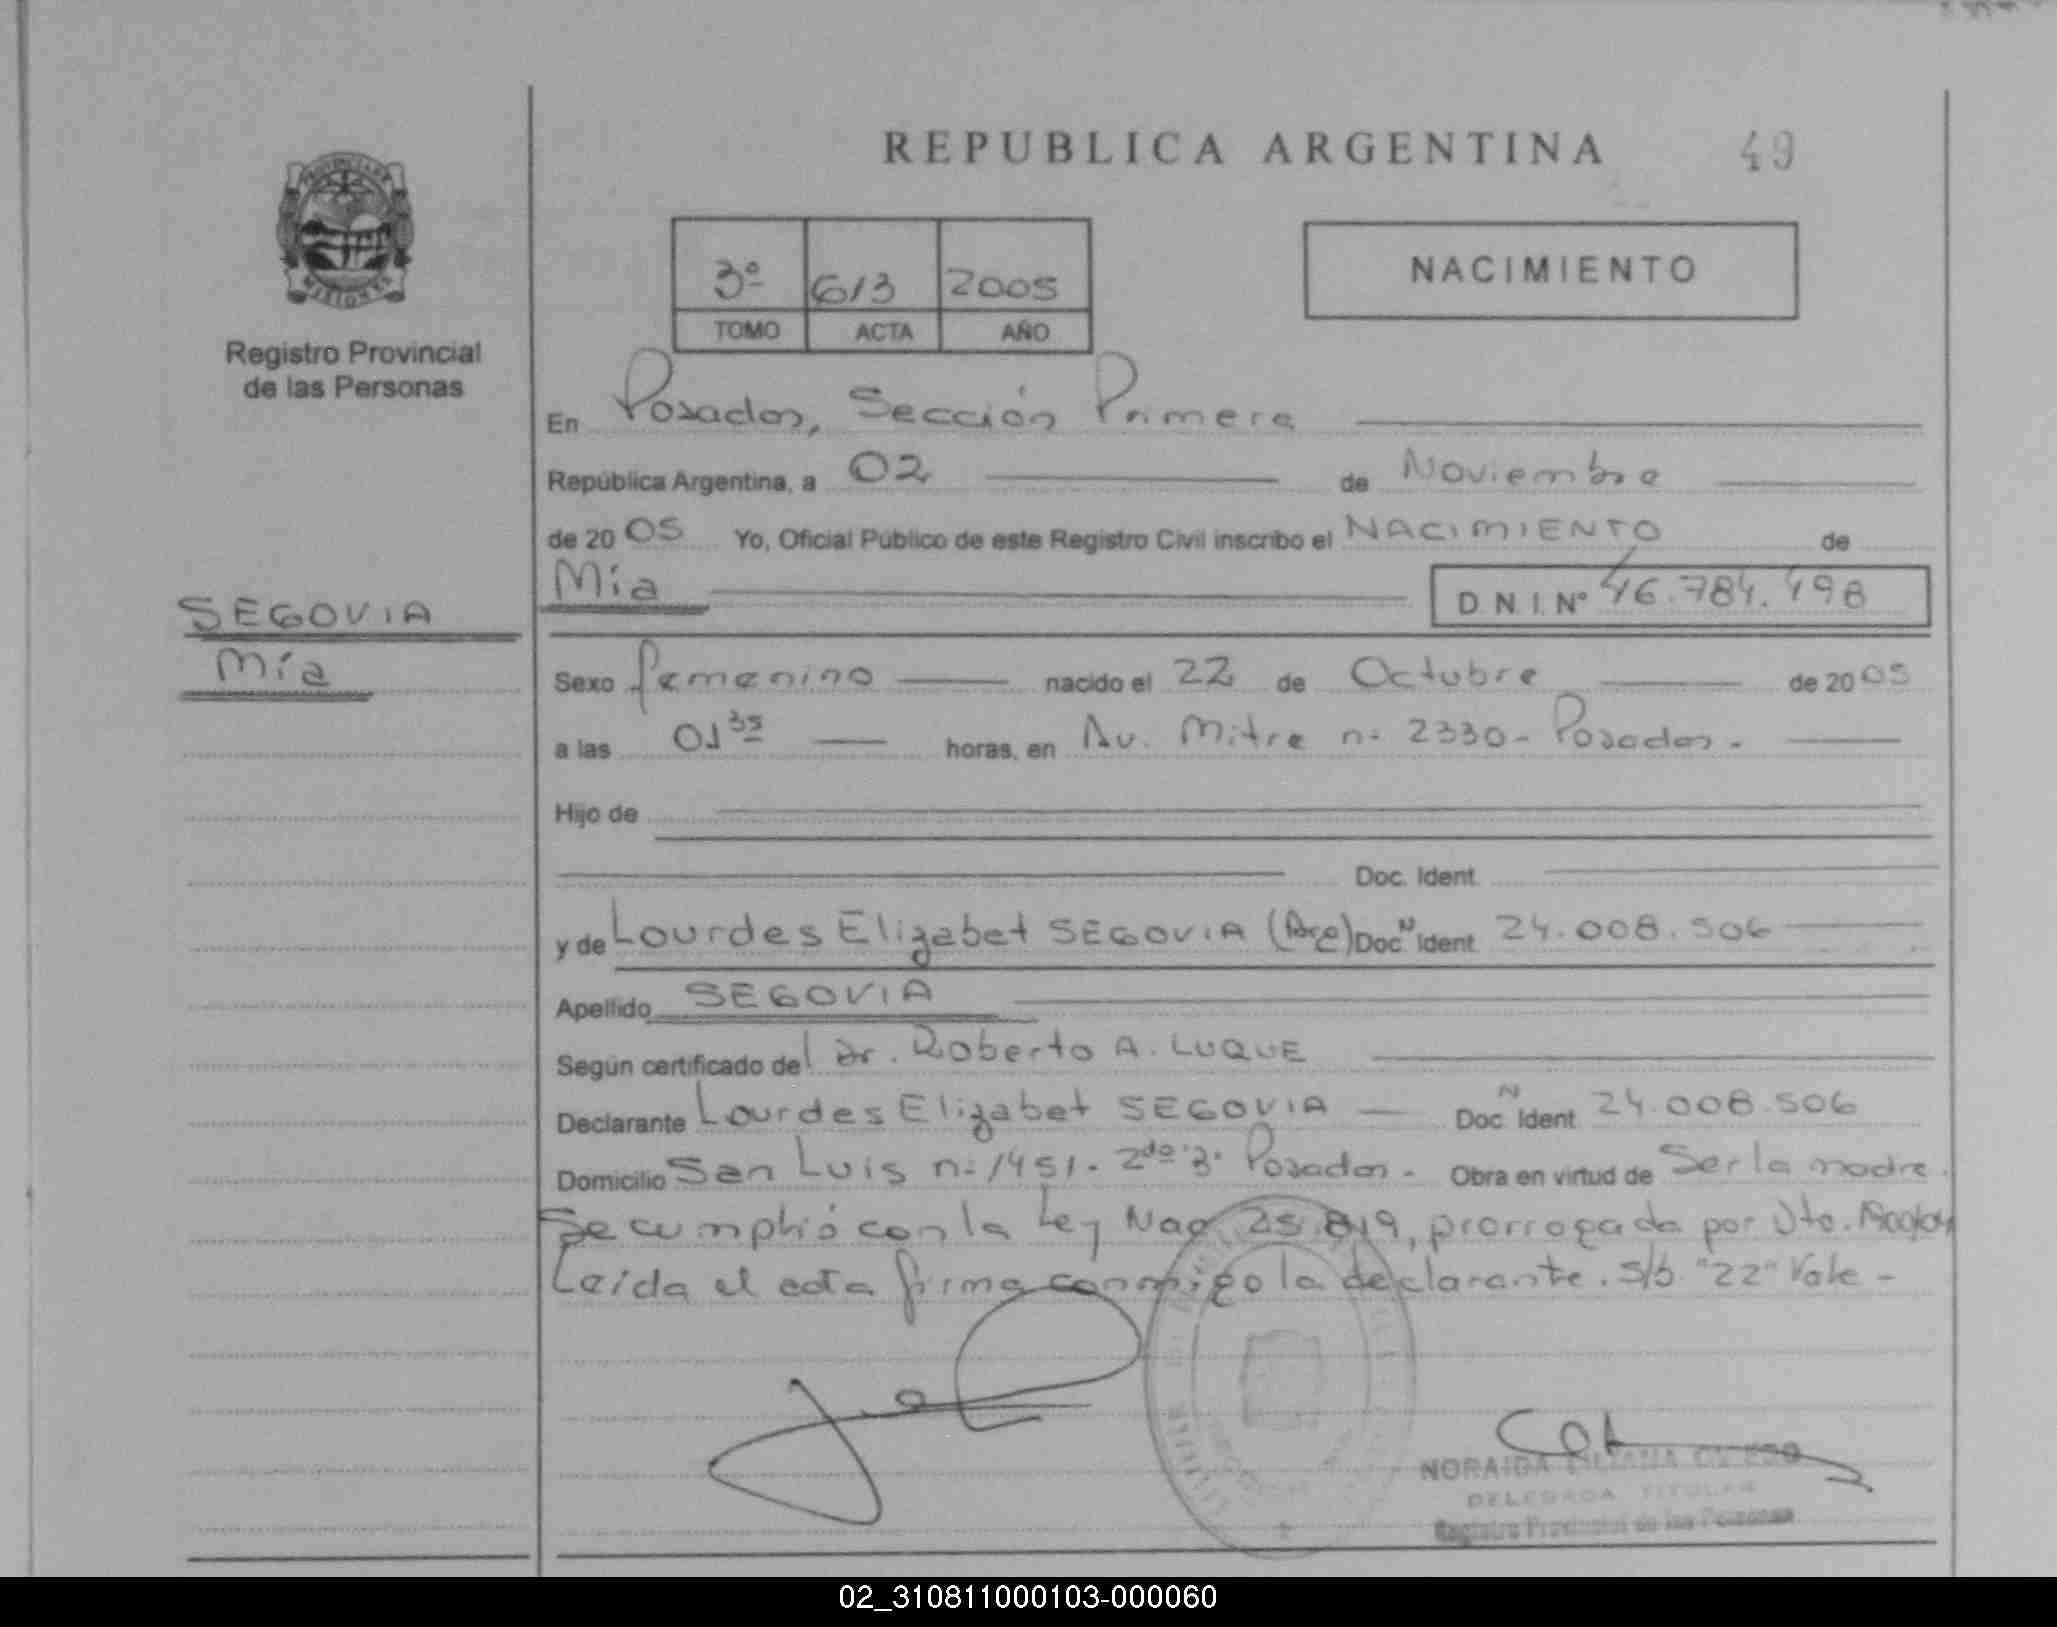 REPUBLICA ARGENTINA 49
PROVINCIA DE
MISIONES
Registro Provincial
de las Personas
3º 613 2005
TOMO ACTA AÑO
NACIMIENTO
En Posadas, Sección Primera
República Argentina, a 02 de Noviembre
de 2005 Yo, Oficial Público de este Registro Civil inscribo el NACIMIENTO de
Mía D N I. Nº 46.784.498
SEGOVIA
Mía
Sexo femenino nacido el 22 de Octubre de 2005
a las 01 35 horas, en Av. Mitre nº 2330- Posadas.
Hijo de
Doc. Ident.
y de Lourdes Elizabet SEGOVIA (Arg) Doc N Ident. 24.008.506
Apellido SEGOVIA
Según certificado del Dr. Roberto A. LUQUE
Declarante Lourdes Elizabet SEGOVIA Doc N Ident 24.008.506
Domicilio San Luis nº 1451. 2do 3. Posadas. Obra en virtud de Ser la madre.
Se cumplió con la Ley Nac 25.819, prorrogada por Dto.
Leída el acta firma conmigo la declarante. S/b. "22" Vale -
NORAIDA LILIANA
DELEGADA TITULAR
Registro Provincial de las Personas
02_310811000103-000060